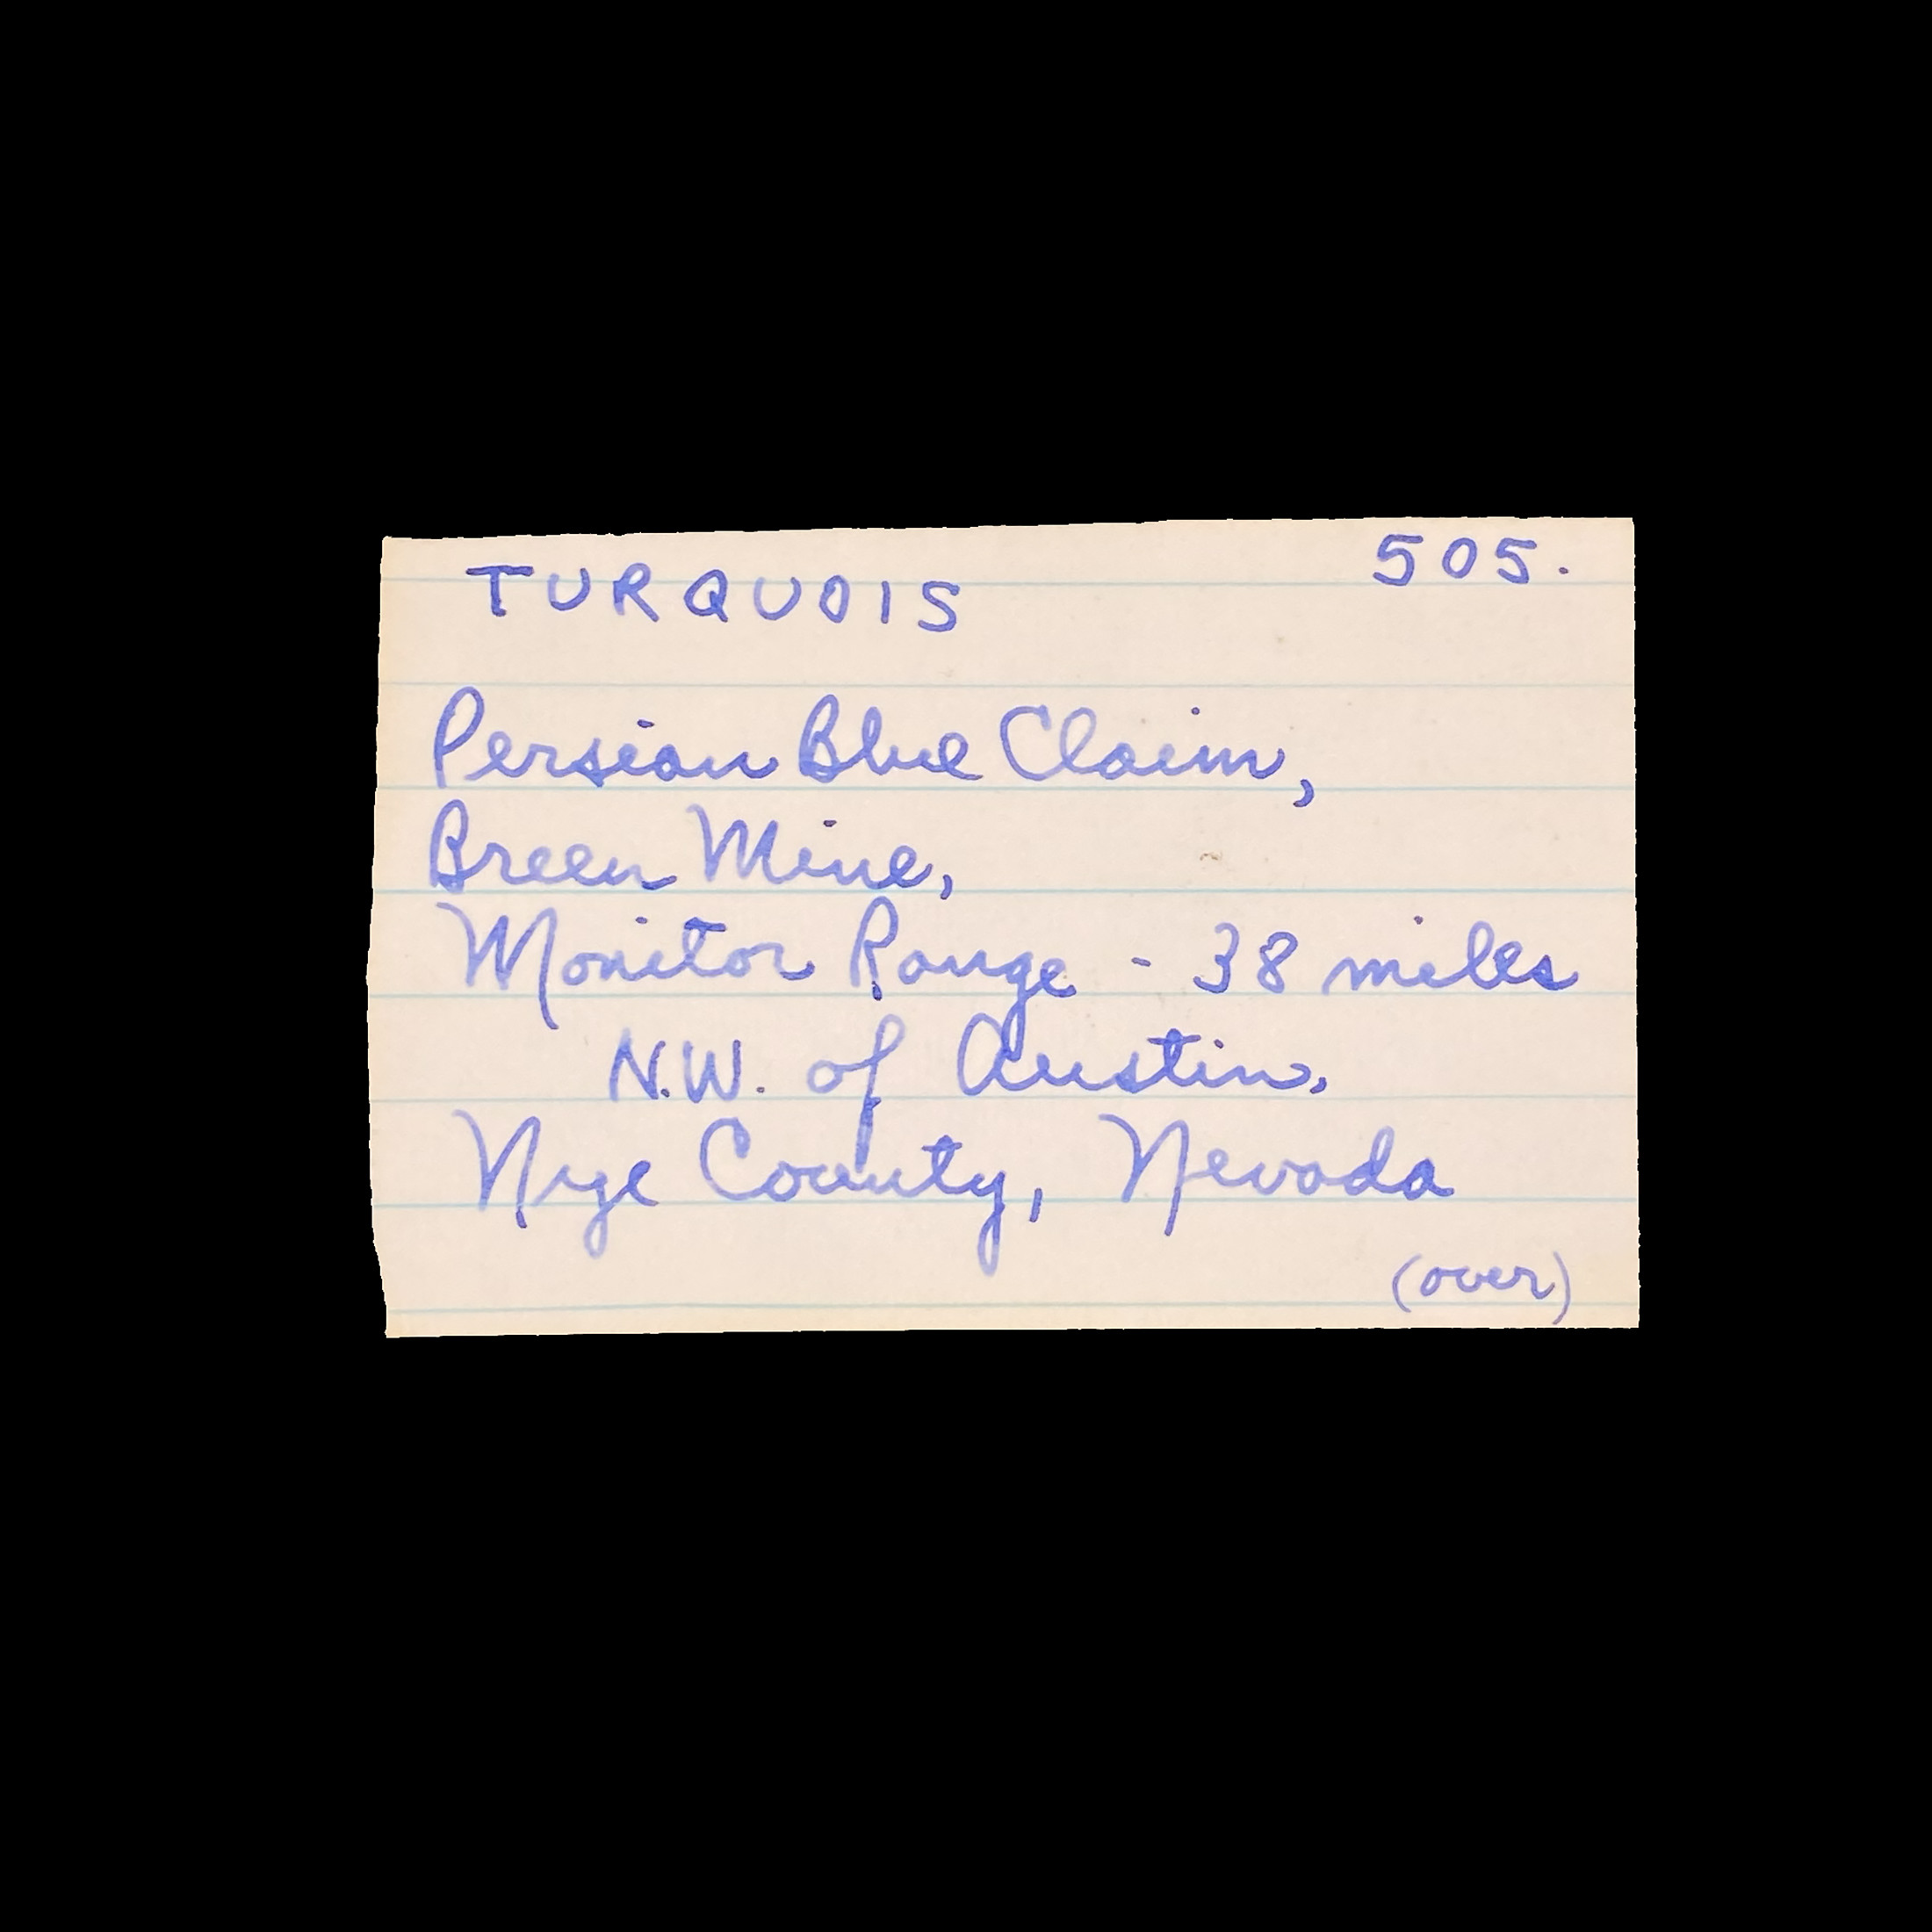 TURQUOIS 505.
Persian Blue Claim,
Breen Mine,
Monitor Range - 38 miles
N.W. of Austin,
Nye County, Nevada
(over)